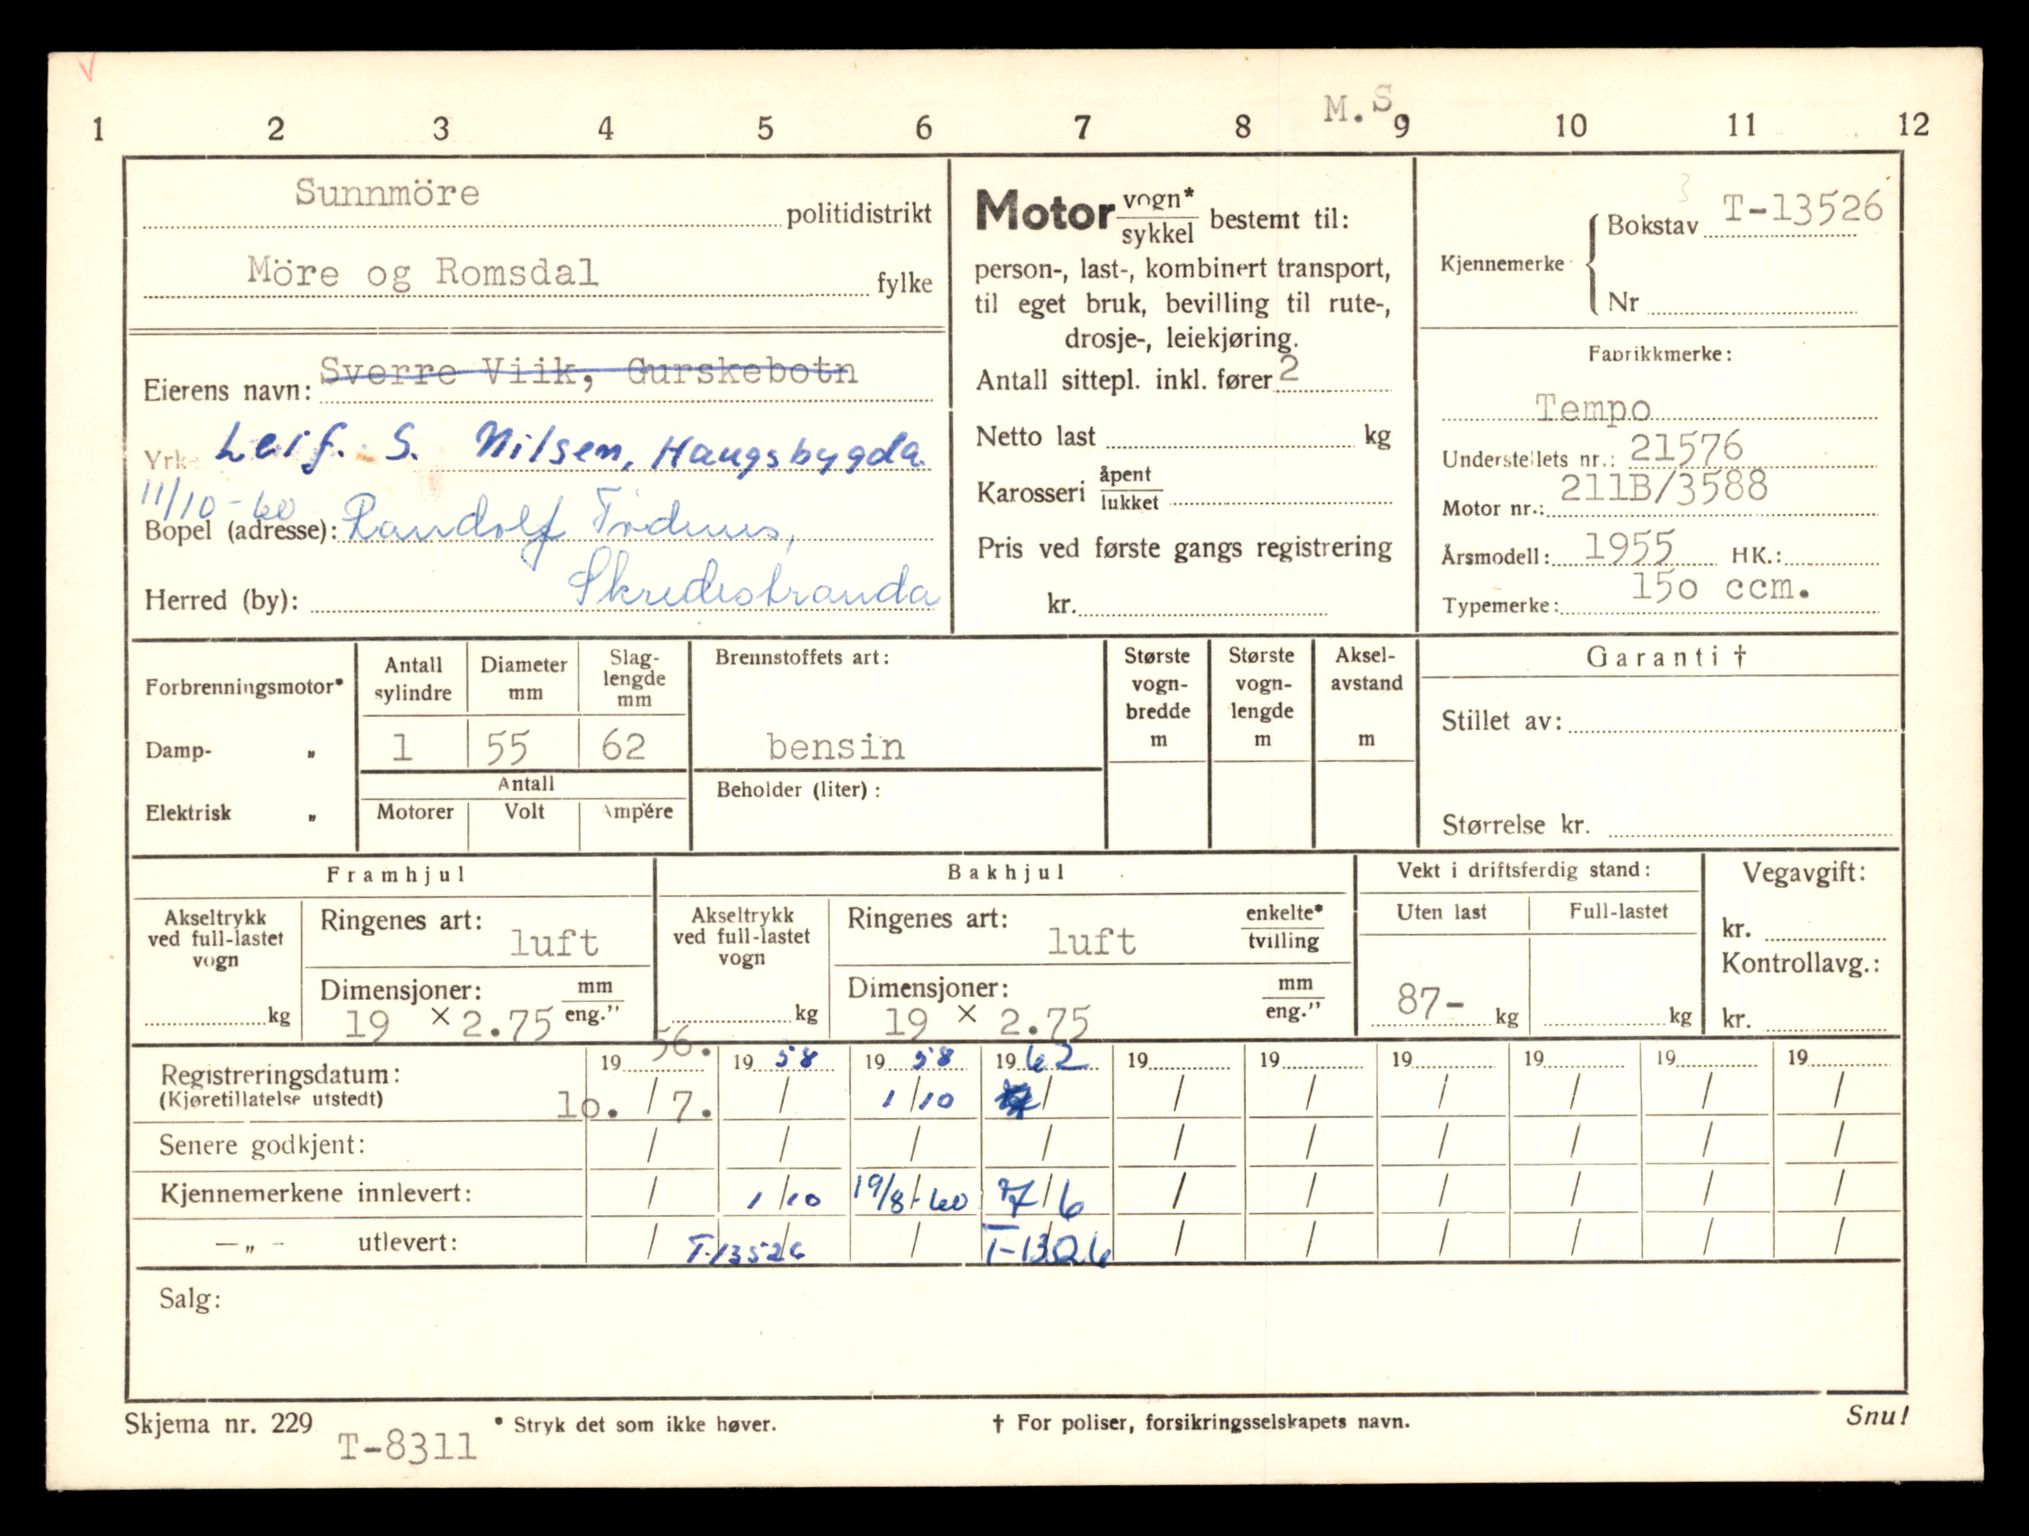 M.S
1 2 3 4 5 6 7 8 9 10 11 12
Sunnmöre politidistrikt
Möre og Romsdal fylke
Eierens navn: Sverre Viik, Gurskebotn
Yrke Leif. S. Nilsen, Haugsbygda.
11/10-60
Bopel (adresse): Randolf
Herred (by): Skredestranda
Motor vogn*
sykkel bestemt til:
person-, last-, kombinert transport,
til eget bruk, bevilling til rute-,
drosje-, leiekjøring.
Antall sittepl. inkl. fører 2
Netto last kg
Karosseri åpent
lukket
Pris ved første gangs registrering
kr.
3
Kjennemerke Bokstav T-13526
Nr
Fabrikkmerke:
Tempo
Understellets nr.: 21576
Motor nr.: 211B/3588
Årsmodell: 1955 HK.:
Typemerke: 150 ccm.
Forbrenningsmotor*
Damp- „
Elektrisk „
Antall sylindre Diameter mm Slag-lengde mm
1 55 62
Antall
Motorer Volt Ampére
Brennstoffets art:
bensin
Beholder (liter) :
Største vogn-bredde m
Største vogn-lengde m
Aksel-avstand m
Garanti †
Stillet av:
Størrelse kr.
Framhjul
Akseltrykk ved full-lastet vogn
kg
Ringenes art:
luft
Dimensjoner: mm
19 × 2.75 eng.”
Bakhjul
Akseltrykk ved full-lastet vogn
kg
Ringenes art: enkelte*
luft tvilling
Dimensjoner: mm
19 × 2.75 eng.”
Vekt i driftsferdig stand:
Uten last Full-lastet
87- kg kg
Vegavgift:
kr.
Kontrollavg.:
kr.
Registreringsdatum: 19 56. 19 58 19 58 19 62 19 19 19 19 19 19
(Kjøretillatelse utstedt) 10. / 7. / 1/10 / / / / / / /
Senere godkjent: / / / / / / / / / /
Kjennemerkene innlevert: / 1/10 19/8-60 7/6 / / / / / /
—„— utlevert: / T-13526 / T-1326 / / / / / /
Salg:
Skjema nr. 229 * Stryk det som ikke høver. † For poliser, forsikringsselskapets navn. Snu!
T-8311